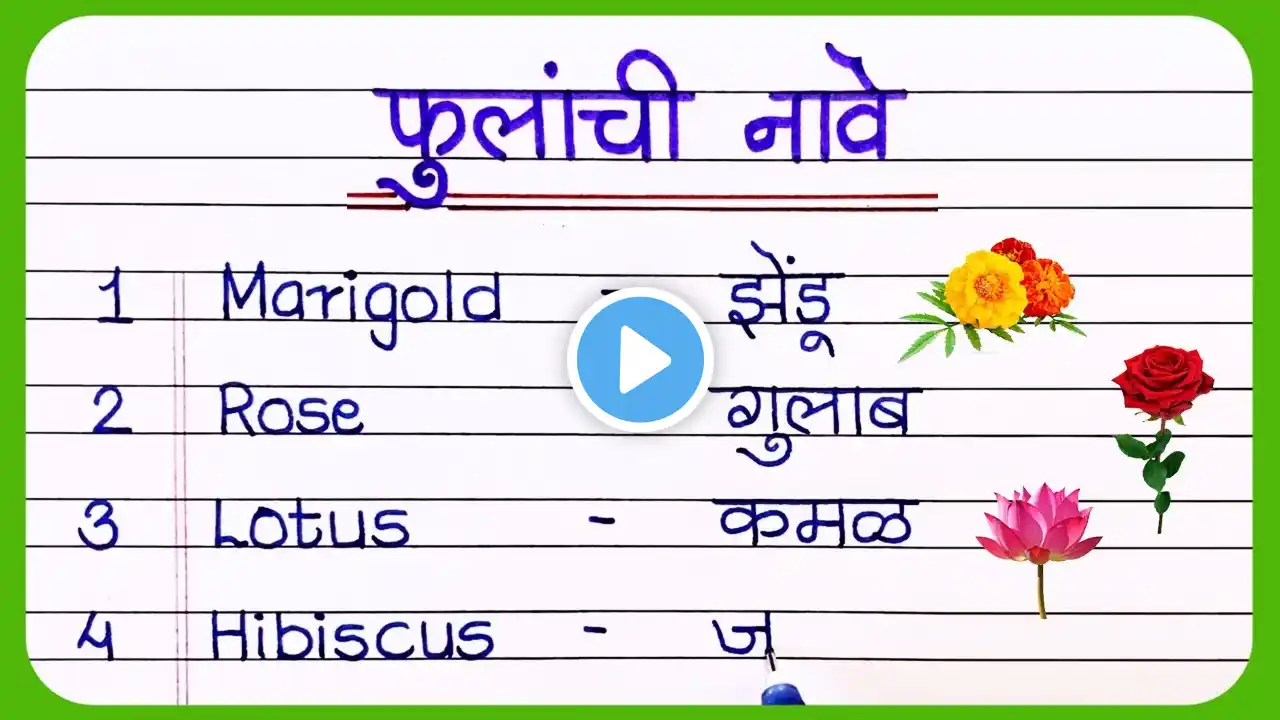 फुलांची नावे
1 Marigold - झेंडू
2 Rose गुलाब
3 Lotus - कमळ
4 Hibiscus - ज